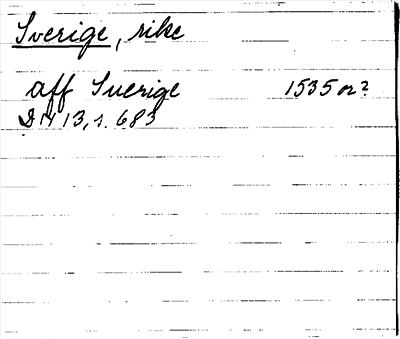 Sverige, rike
aff Sverige 1535 or?
DN 13, s. 683